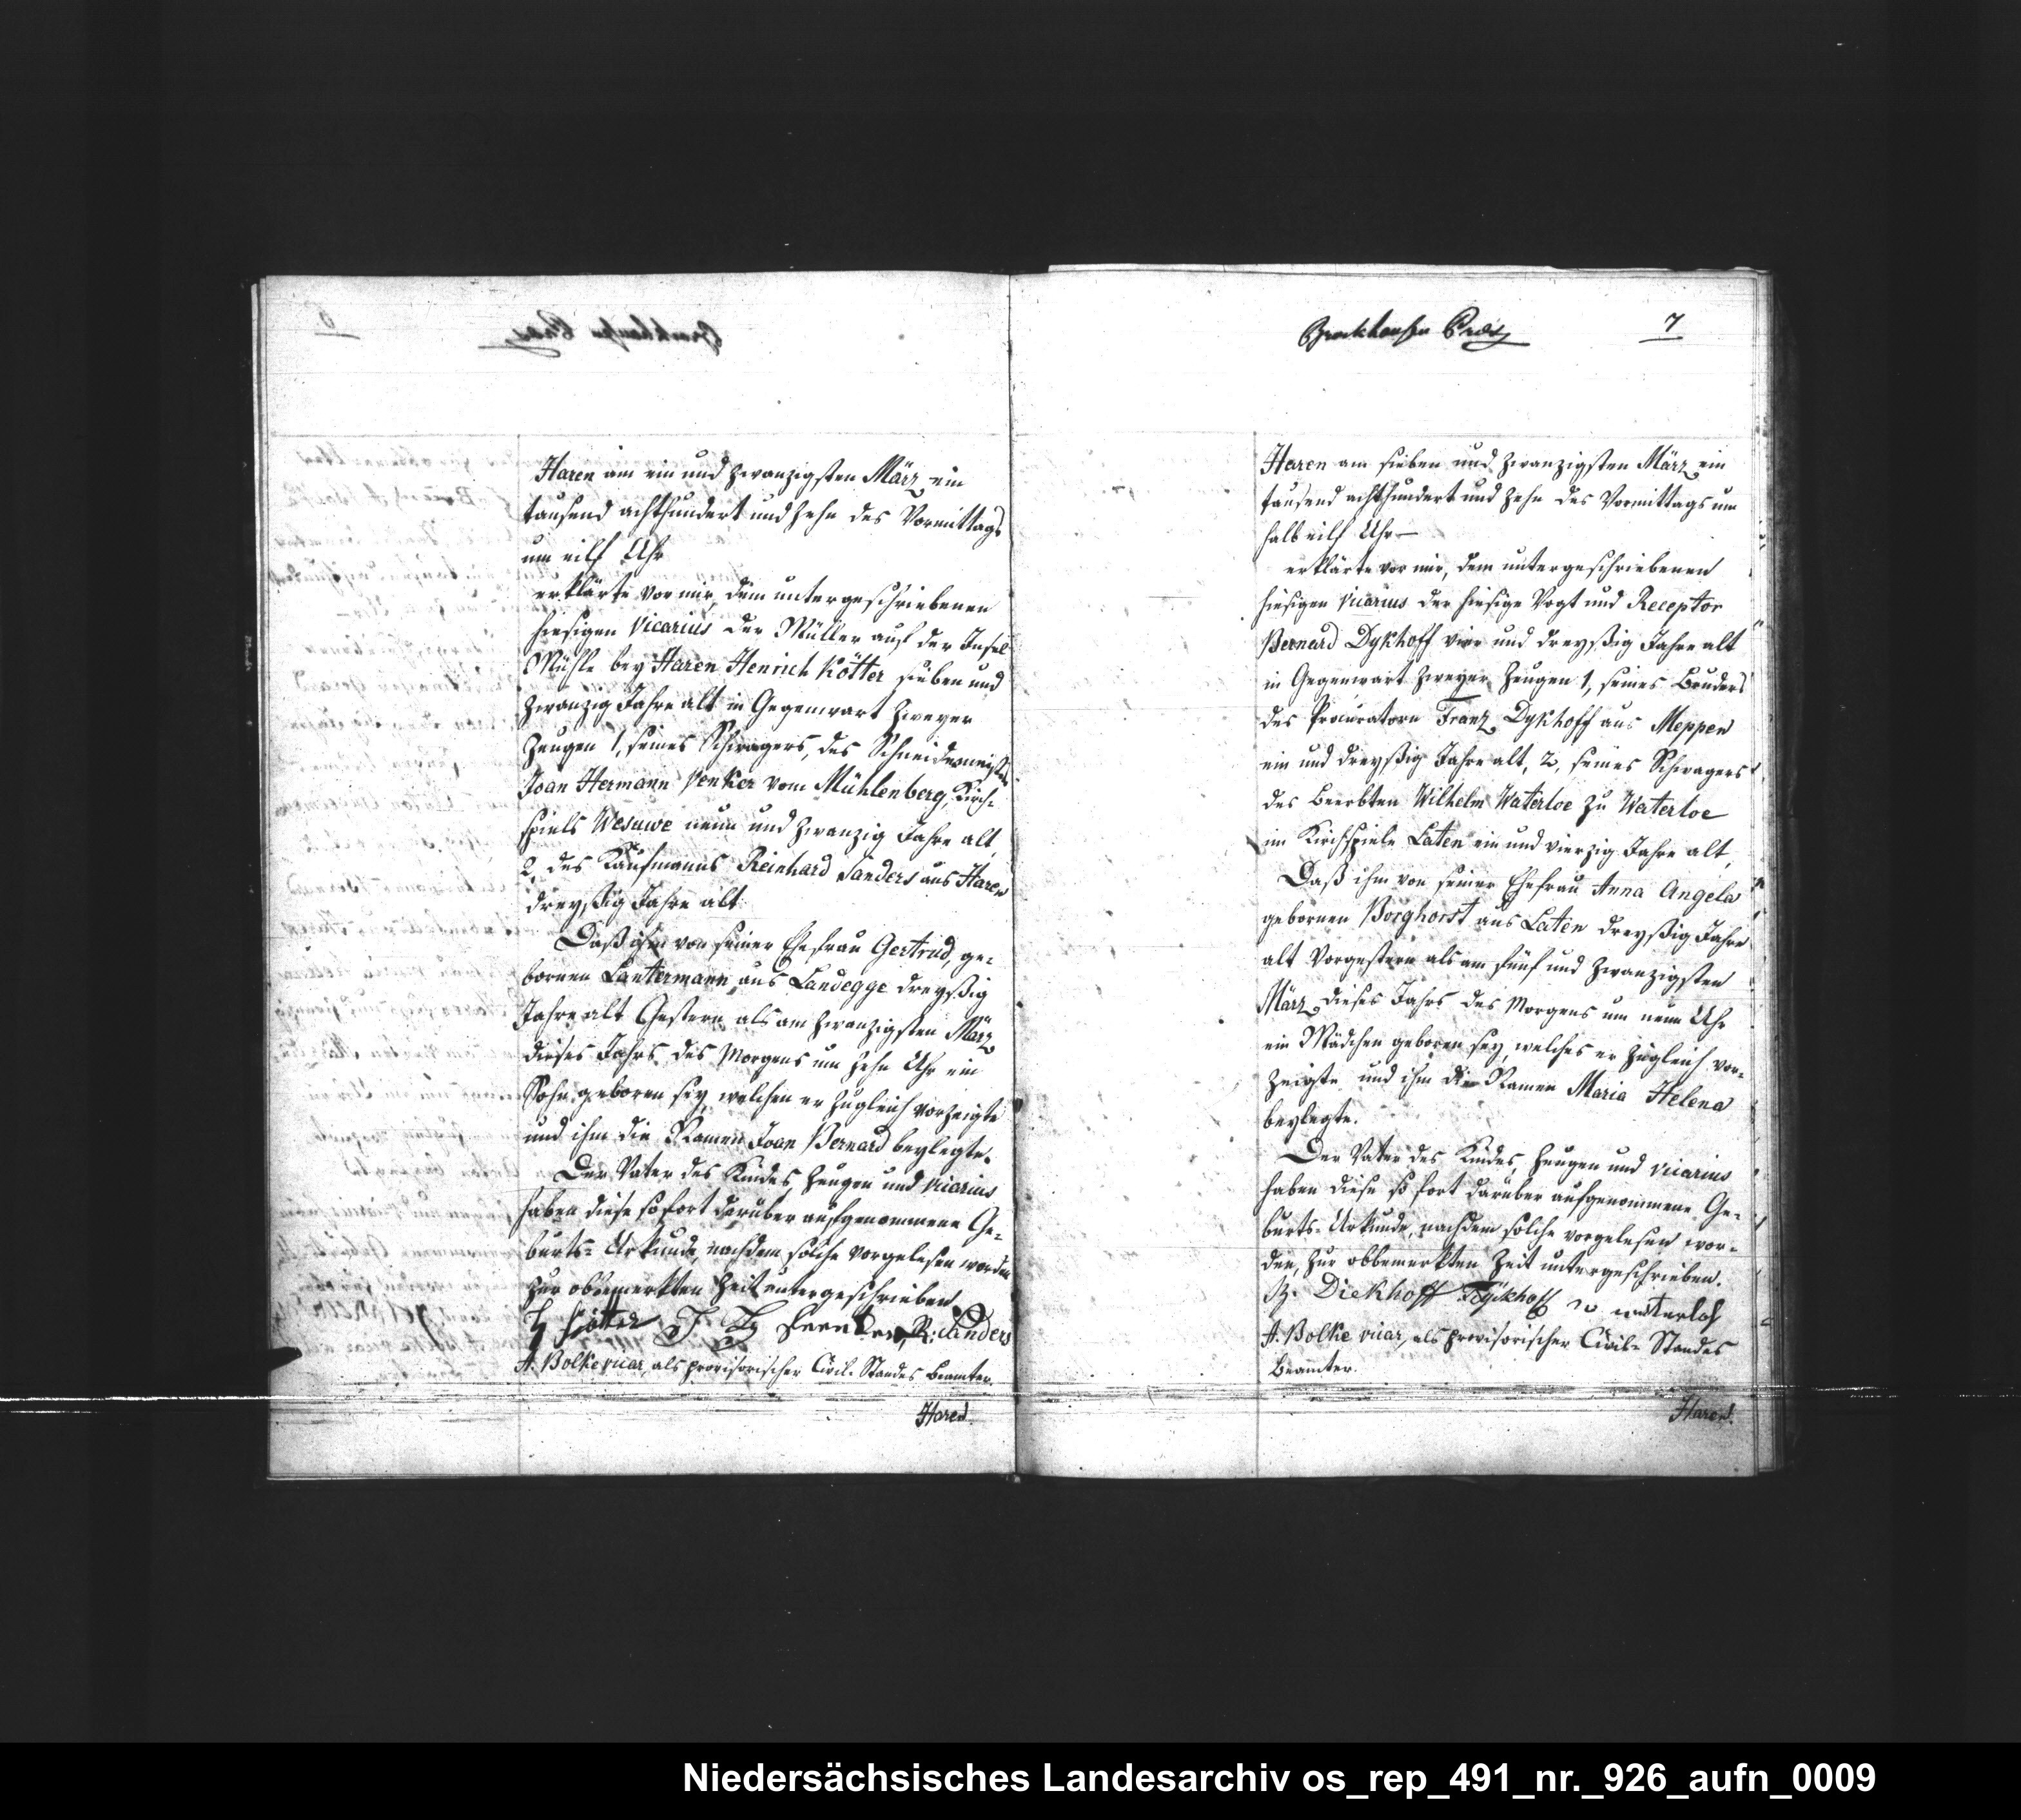 Haren am ein und zwanzigsten März ein
tausend achthundert und zehn des Vormittags
um eilf Uhr
erklärte vor mir, dem untergeschriebenen
hiesigen Vicarius der Müller auf der Insel
Mühle bey Haren Henrich Kötter sieben und
zwanzig Jahre alt in Gegenwart zweyer
Zeugen 1, seines Schwagers, des Schneidermeisters
Joan Hermann Venker vom Mühlenberg, Kirch-
spiels Wesuwe neun und zwanzig Jahre alt
2, des Kaufmanns Reinhard Sanders aus Haren
dreyßig Jahre alt
Daß ihm von seiner Ehefrau Gertrud, ge-
bornen Lantermann aus Landegge dreyßig
Jahre alt Gestern als am zwanzigsten März
dieses Jahrs des Morgens um zehn Uhr ein
Sohn geboren sey, welchen er zugleich vorzeigte
und ihm die Namen Joan Bernard beylegte.
Der Vater des Kindes Zeugen und Vicarius
haben diese sofort darüber aufgenommene Ge-
burts-Urkunde, nachdem solche vorgelesen worden
zur obbemerkten Zeit untergeschrieben
H Kötter J H Fenker R: Sanders
A. Bolke vicar, als provisorischer Civil-Standes Beamter.
Haren
Brockhausen Präs
7
Haren am sieben und zwanzigsten März ein
tausend achthundert und zehn des Vormittags um
halb eilf Uhr—
erklärte vor mir, dem untergeschriebenen
hiesigen Vicarius der hiesige Vogt und Receptor
Bernard Dykhoff vier und dreyßig Jahre alt
in Gegenwart zweyer Zeugen 1, seines Bruders
des Procuratorn Franz Dykhoff aus Meppen
ein und dreyßig Jahre alt, 2, seines Schwagers
des Beerbten Wilhelm Waterloe zu Waterloe
im Kirchspiele Laten ein und vierzig Jahre alt,
Daß ihm von seiner Ehefrau Anna Angela
gebornen Borghorst aus Laten dreyßig Jahre
alt Vorgestern als am fünf und zwanzigsten
März dieses Jahrs des Morgens um neun Uhr
ein Mädchen geboren sey, welches er zugleich vor-
zeigte und ihm die Namen Maria Helena
beylegte.
Der Vater des Kindes, Zeugen und Vicarius
haben diese so fort darüber aufgenommene Ge-
burts-Urkunde, nachdem solche vorgelesen wor-
den, zur obbemerkten Zeit untergeschrieben.
B. Diekhoff F Dyckhoff w waterloh
A. Bolke vicar, als provisorischer Civil-Standes
Beamter.
Haren.
Niedersächsisches Landesarchiv os_rep_491_nr._926_aufn_0009